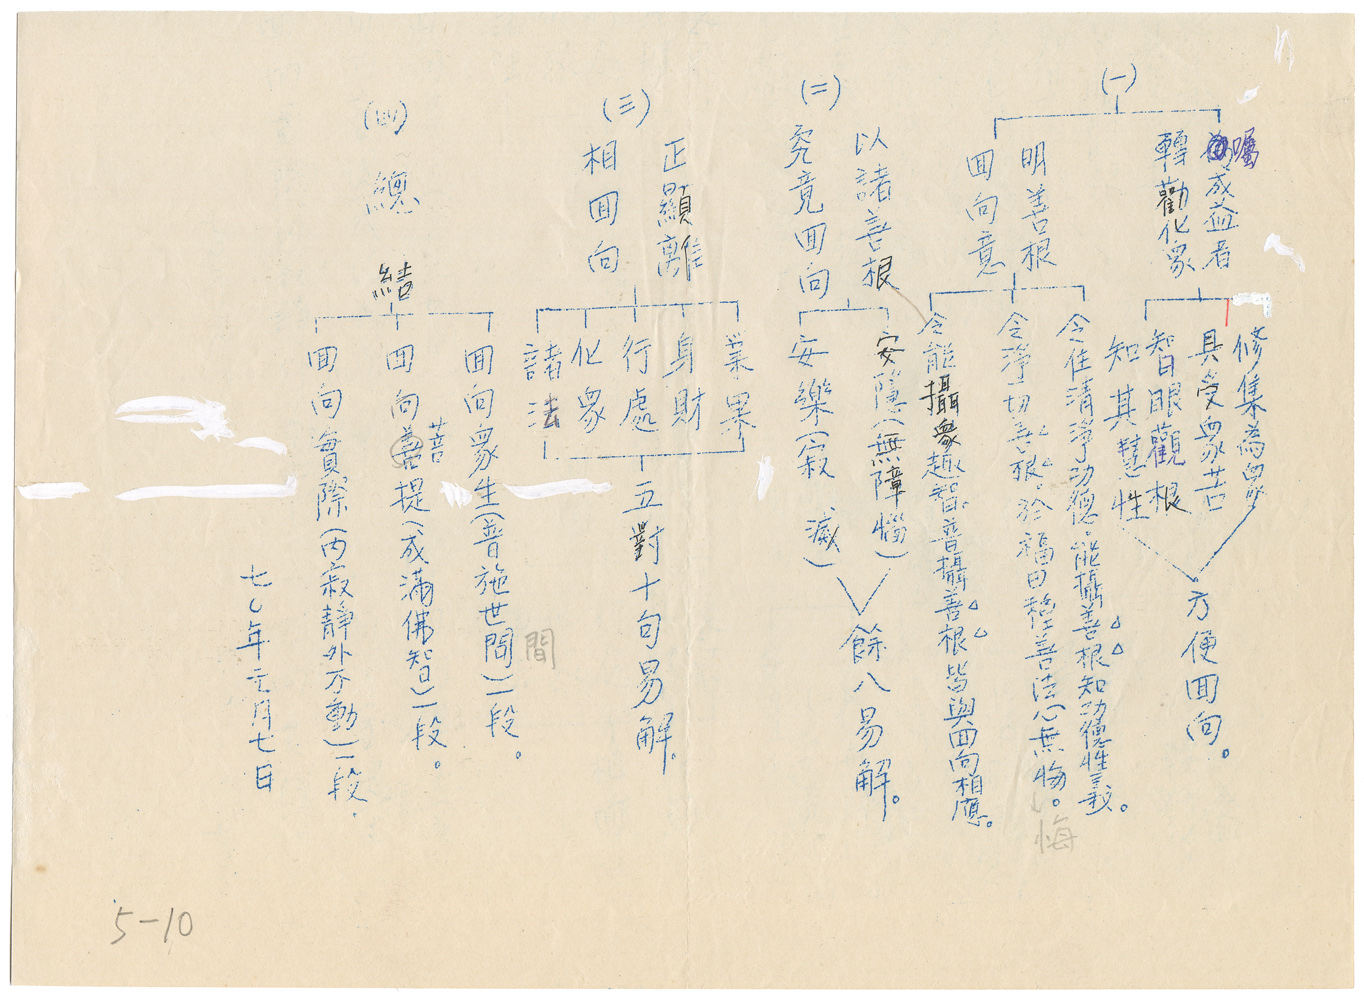 (一)
囑成益者
轉勸化眾
修集為眾
具受眾苦
智眼觀根
知其慧性
方便回向。
明善根
回向意
令住清淨功德。能攝善根知功德性義。
令淨一切善根。於福田種善法心無悔。
悔
令能攝眾趣智。普攝善根皆與回向相應。
(二)
以諸善根
究竟回向
安隱(無障惱)
安樂(寂滅)
餘八易解。
(三)
正顯離
相回向
業界
身財
行處
化眾
諸法
五對十句易解。
(四)
總結
回向眾生(普施世間)一段。
間
回向菩提(成滿佛智)一段。
菩
回向實際(內寂靜外不動)一段.
七〇年元月七日
5-10